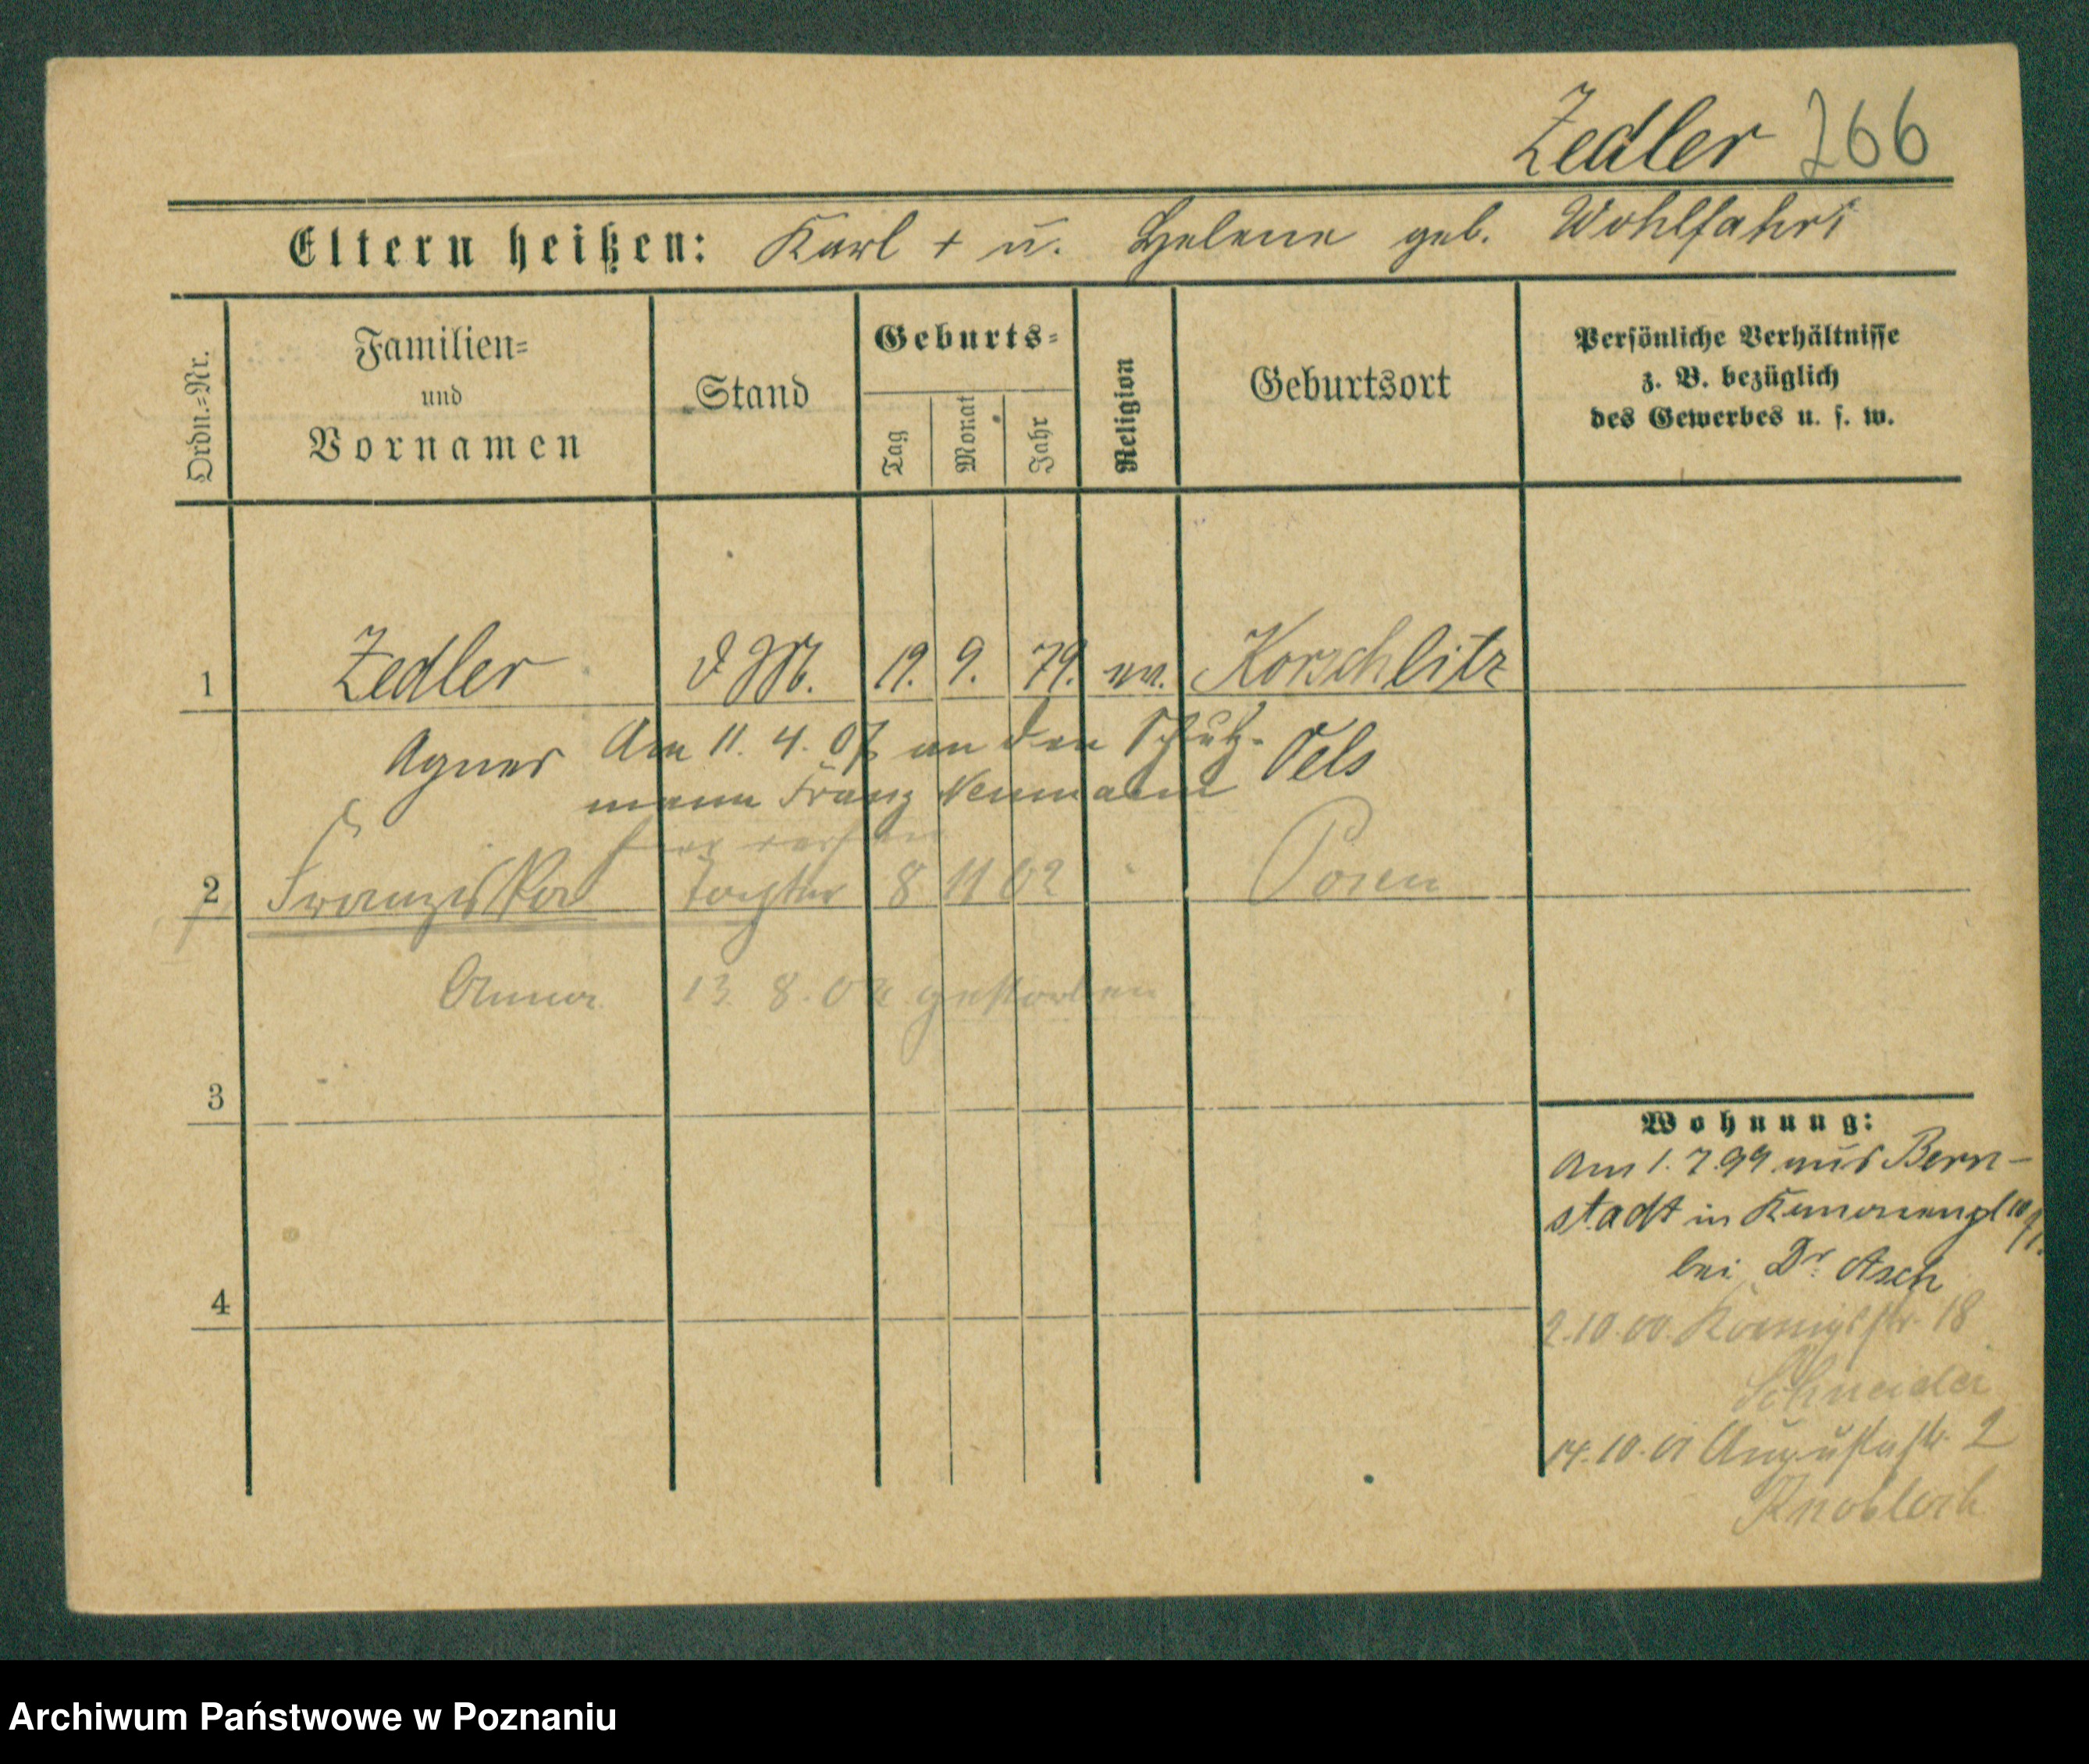 Zedler 266
Eltern heißen: Karl + u. Helene geb. Wohlfahrt
Ordn.=Nr.
Familien=
und
Vornamen
Stand
Geburts=
Tag
Monat
Jahr
Religion
Geburtsort
Persönliche Verhältnisse
z. B. bezüglich
des Gewerbes u. s. w.
1 Zedler D M. 19. 9. 79. ev. Korschlitz
Agnes Am 11. 4. 07 an den Schutz- Oels
mann Franz Neumann
hier verh
2 Franziska Tochter 8 11 02 Posen
Anna 13. 8. 02 gestorben
3
4
Wohnung:
Am 1. 7. 99 aus Bern-
stadt in
bei Dr. Asch
2.10.00. Königsstr. 18
Schneider
14.10.01 Augustastr. 2
Knobloch
Archiwum Państwowe w Poznaniu